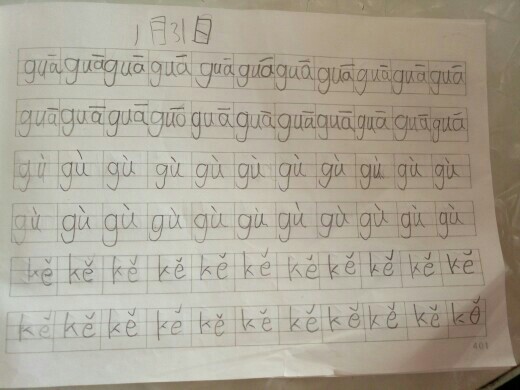 1月31日
guā guā guā guā guā guā guā guā guā guā guā
guā guā guā guā guā guā guā guā guā guā guā
gù gù gù gù gù gù gù gù gù gù gù
gù gù gù gù gù gù gù gù gù gù gù
kě kě kě kě kě kě kě kě kě kě kě
kě kě kě kě kě kě kě kě kě kě kě
401